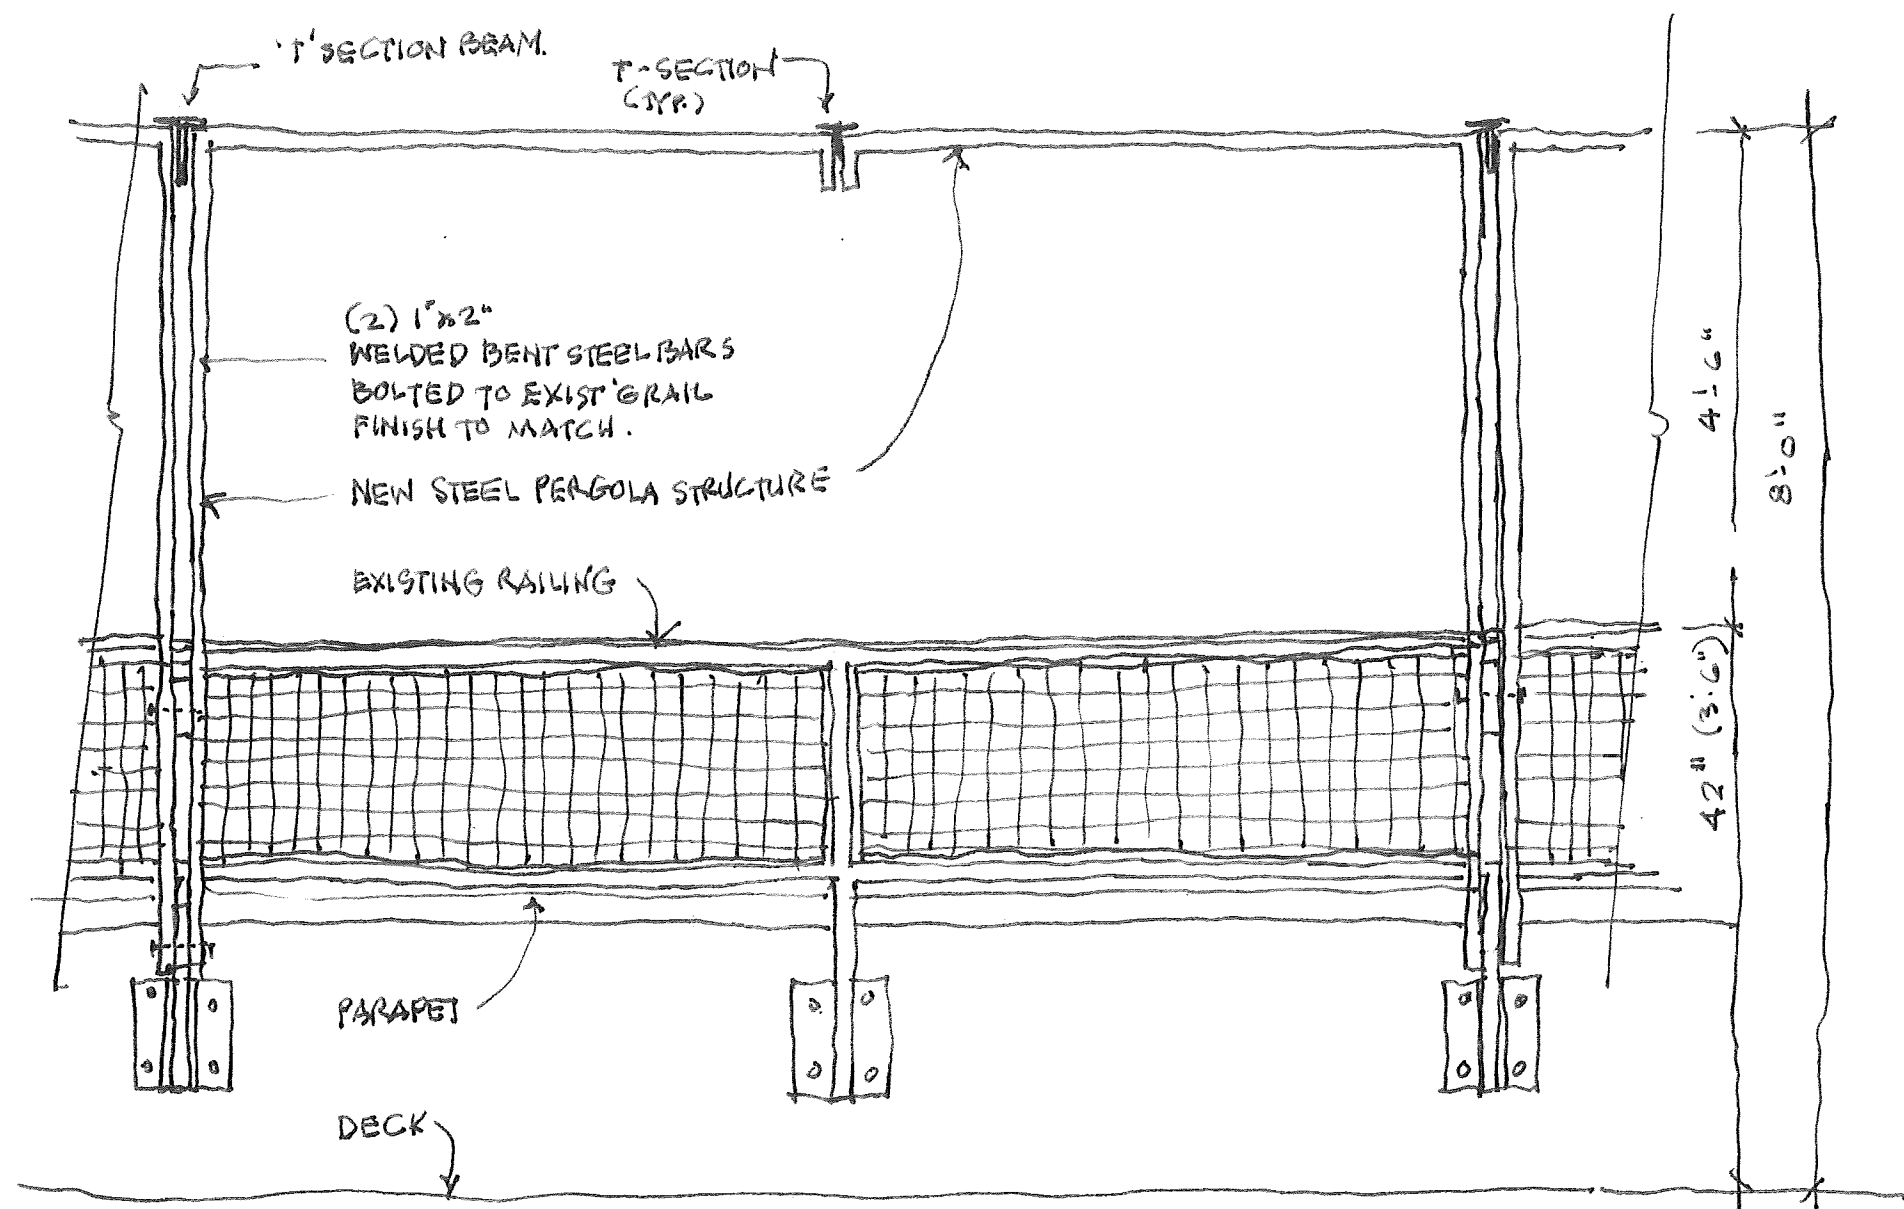 'T' SECTION BEAM.
T-SECTION
(TYP.)
(2) 1"x2"
WELDED BENT STEEL BARS
BOLTED TO EXIST'G RAIL
FINISH TO MATCH.
NEW STEEL PERGOLA STRUCTURE
EXISTING RAILING
PARAPET
DECK
4'-6"
8'-0"
42" (3'-6")